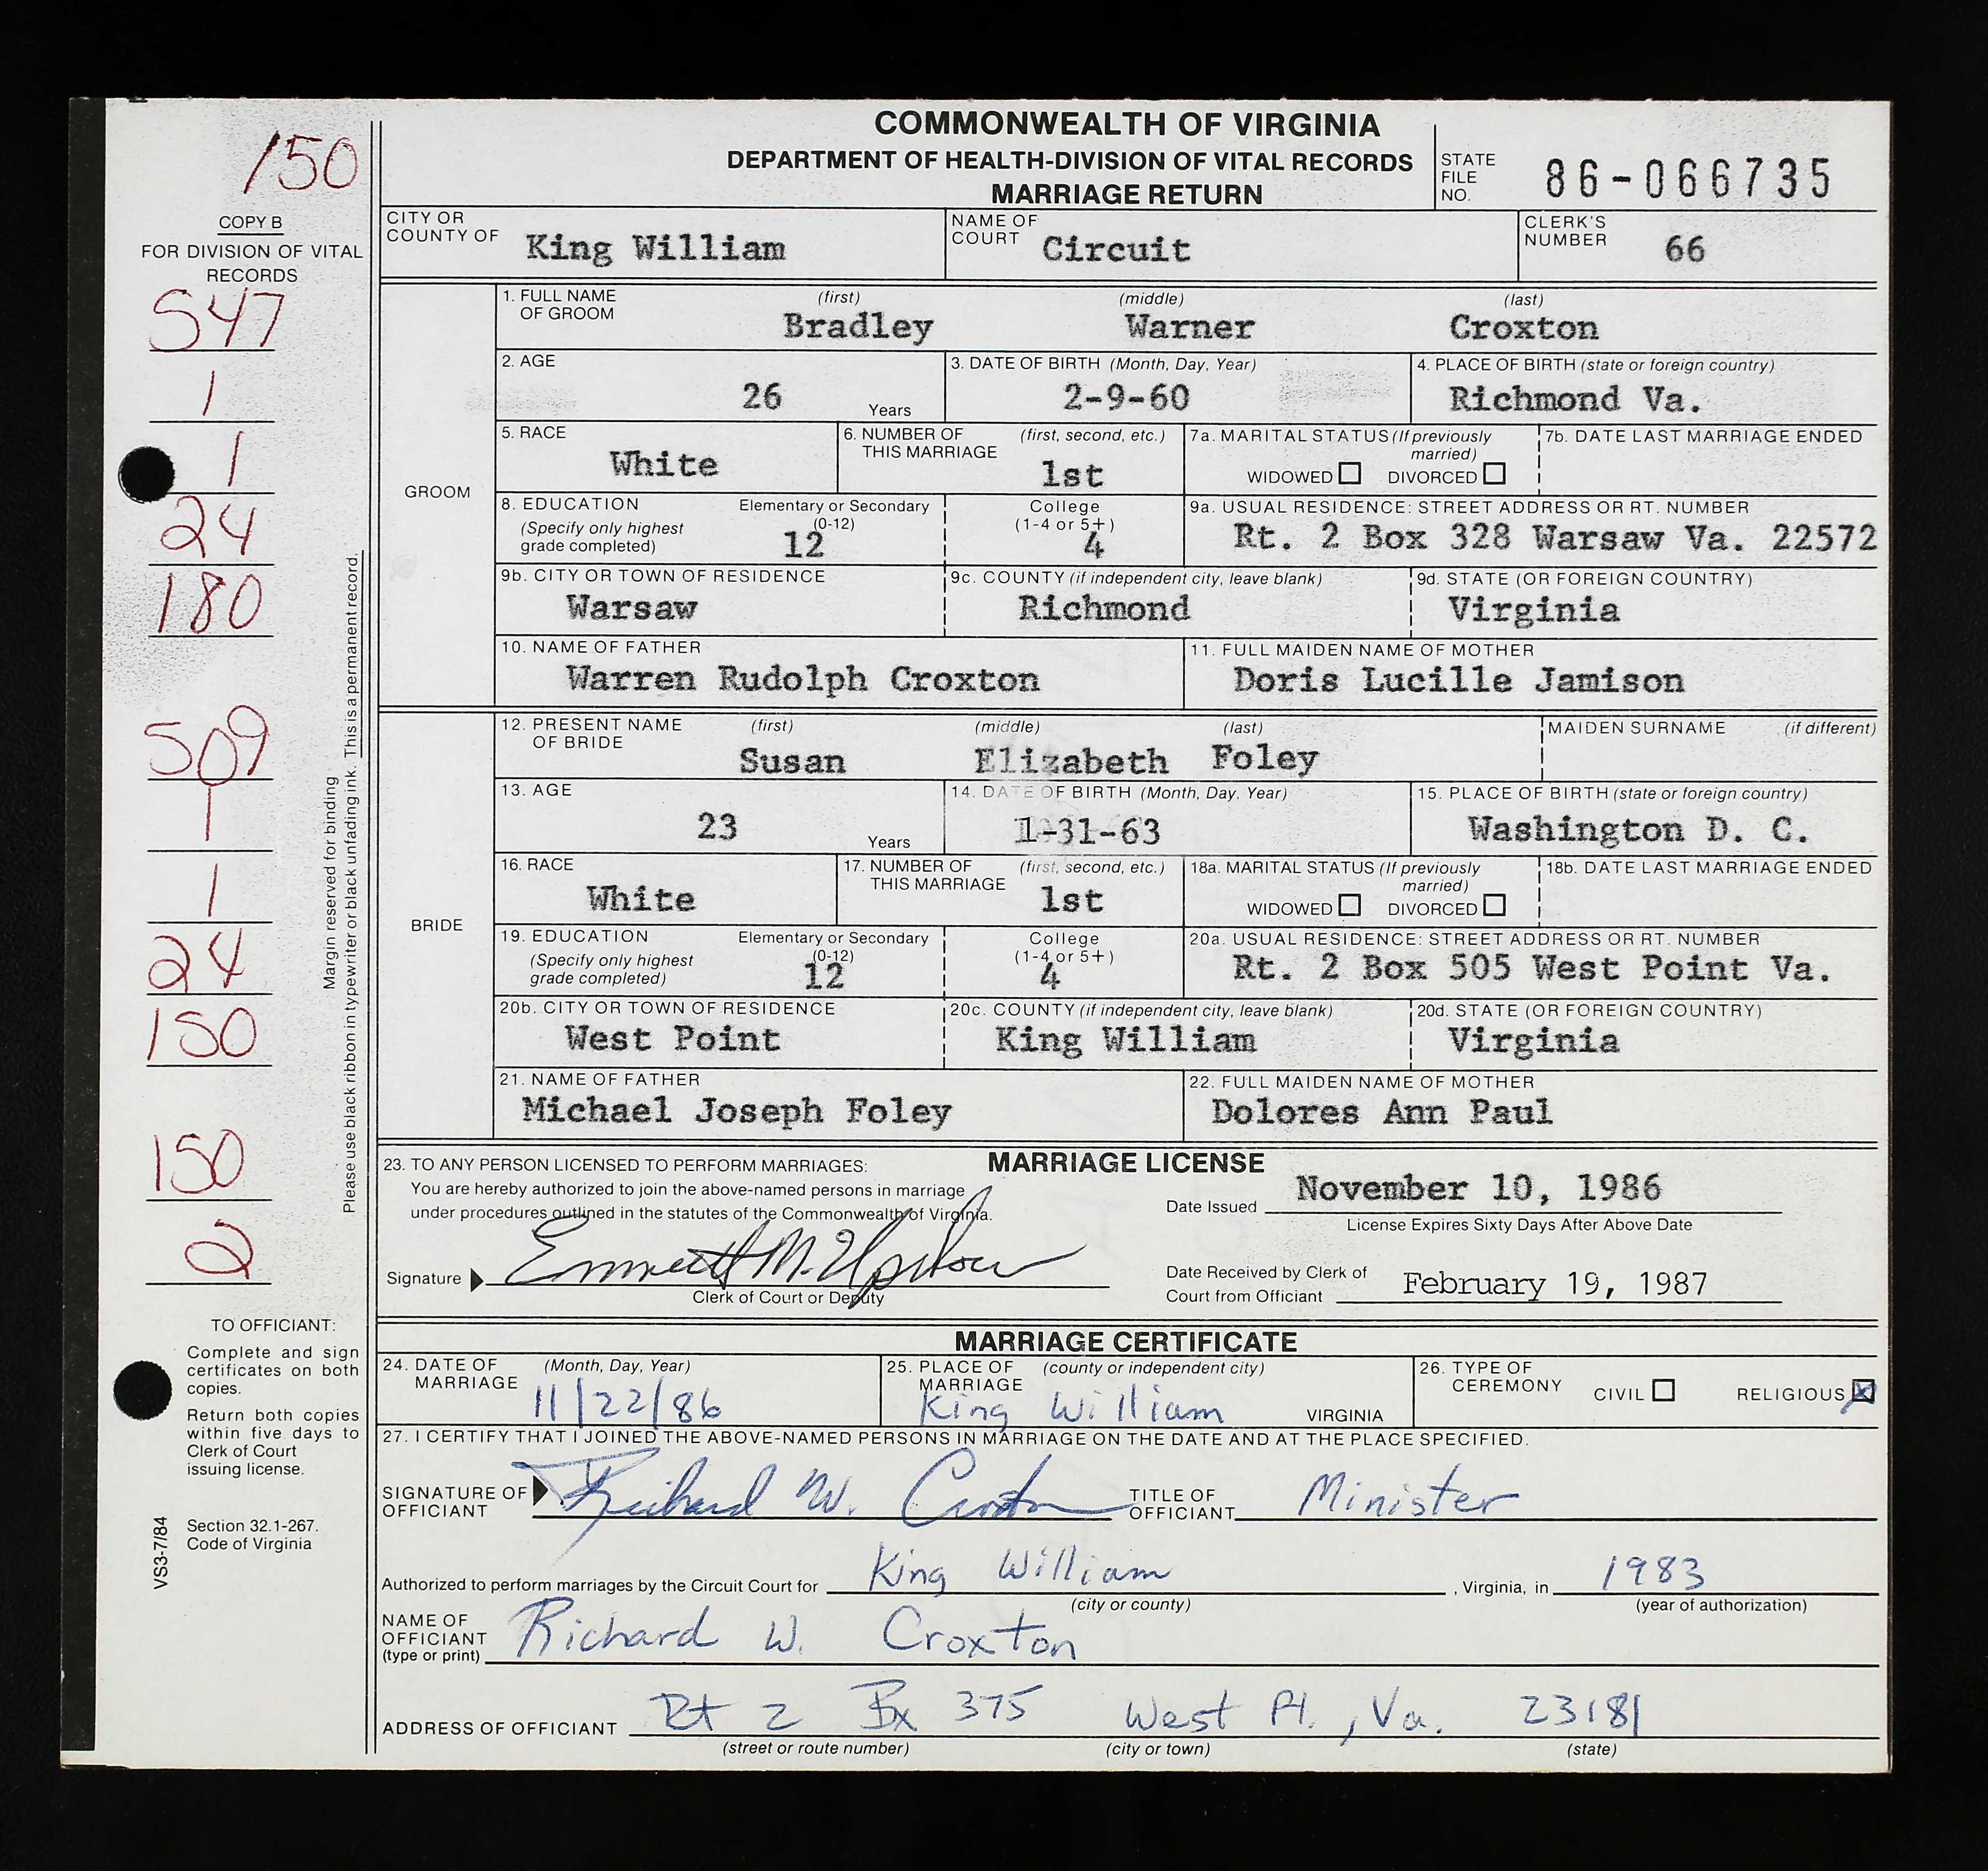 COMMONWEALTH OF VIRGINIA
DEPARTMENT OF HEALTH-DIVISION OF VITAL RECORDS
MARRIAGE RETURN
STATE FILE NO. 86-066735
150
COPY B
FOR DIVISION OF VITAL RECORDS
547
1
1
24
180
509
1
1
24
150
150
2
Margin reserved for binding
Please use black ribbon in typewriter or black unfading ink. This is a permanent record.
TO OFFICIANT:
Complete and sign
certificates on both
copies.
Return both copies
within five days to
Clerk of Court
issuing license.
Section 32.1-267.
Code of Virginia
VS3-7/84
CITY OR COUNTY OF King William
NAME OF COURT Circuit
CLERK'S NUMBER 66
GROOM
1. FULL NAME OF GROOM (first) Bradley (middle) Warner (last) Croxton
2. AGE 26 Years
3. DATE OF BIRTH (Month, Day, Year) 2-9-60
4. PLACE OF BIRTH (state or foreign country) Richmond Va.
5. RACE White
6. NUMBER OF THIS MARRIAGE (first, second, etc.) 1st
7a. MARITAL STATUS (If previously married) WIDOWED DIVORCED
7b. DATE LAST MARRIAGE ENDED
8. EDUCATION (Specify only highest grade completed) Elementary or Secondary (0-12) 12 College (1-4 or 5+) 4
9a. USUAL RESIDENCE: STREET ADDRESS OR RT. NUMBER Rt. 2 Box 328 Warsaw Va. 22572
9b. CITY OR TOWN OF RESIDENCE Warsaw
9c. COUNTY (if independent city, leave blank) Richmond
9d. STATE (OR FOREIGN COUNTRY) Virginia
10. NAME OF FATHER Warren Rudolph Croxton
11. FULL MAIDEN NAME OF MOTHER Doris Lucille Jamison
BRIDE
12. PRESENT NAME OF BRIDE (first) Susan (middle) Elizabeth (last) Foley MAIDEN SURNAME (if different)
13. AGE 23 Years
14. DATE OF BIRTH (Month, Day, Year) 1-31-63
15. PLACE OF BIRTH (state or foreign country) Washington D. C.
16. RACE White
17. NUMBER OF THIS MARRIAGE (first, second, etc.) 1st
18a. MARITAL STATUS (If previously married) WIDOWED DIVORCED
18b. DATE LAST MARRIAGE ENDED
19. EDUCATION (Specify only highest grade completed) Elementary or Secondary (0-12) 12 College (1-4 or 5+) 4
20a. USUAL RESIDENCE: STREET ADDRESS OR RT. NUMBER Rt. 2 Box 505 West Point Va.
20b. CITY OR TOWN OF RESIDENCE West Point
20c. COUNTY (if independent city, leave blank) King William
20d. STATE (OR FOREIGN COUNTRY) Virginia
21. NAME OF FATHER Michael Joseph Foley
22. FULL MAIDEN NAME OF MOTHER Dolores Ann Paul
MARRIAGE LICENSE
23. TO ANY PERSON LICENSED TO PERFORM MARRIAGES:
You are hereby authorized to join the above-named persons in marriage
under procedures outlined in the statutes of the Commonwealth of Virginia.
Date Issued November 10, 1986
License Expires Sixty Days After Above Date
Signature Emmett M. Upshaw
Clerk of Court or Deputy
Date Received by Clerk of Court from Officiant February 19, 1987
MARRIAGE CERTIFICATE
24. DATE OF MARRIAGE (Month, Day, Year) 11/22/86
25. PLACE OF MARRIAGE (county or independent city) King William VIRGINIA
26. TYPE OF CEREMONY CIVIL RELIGIOUS X
27. I CERTIFY THAT I JOINED THE ABOVE-NAMED PERSONS IN MARRIAGE ON THE DATE AND AT THE PLACE SPECIFIED.
SIGNATURE OF OFFICIANT Richard W. Croxton TITLE OF OFFICIANT Minister
Authorized to perform marriages by the Circuit Court for King William, Virginia, in 1983
(city or county) (year of authorization)
NAME OF OFFICIANT (type or print) Richard W. Croxton
ADDRESS OF OFFICIANT Rt 2 Bx 375 West Pt., Va. 23181
(street or route number) (city or town) (state)